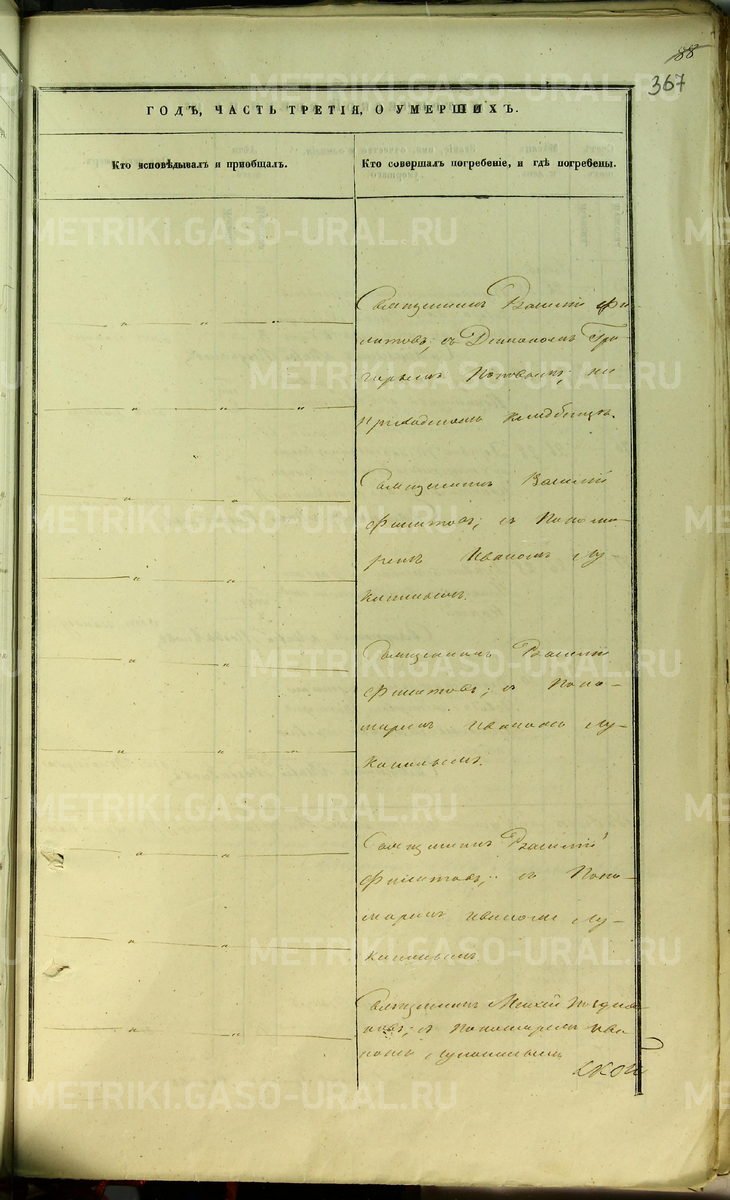 88
367
ГОДЪ, ЧАСТЬ ТРЕТІЯ, О УМЕРШИХЪ.
Кто исповѣдывалъ и пріобщалъ.
Кто совершалъ погребеніе, и гдѣ погребены.
Священникъ Василій Фи-
литовъ; съ Діакономъ Гри-
горьемъ Поповымъ; на
приходскомъ кладбищѣ.
Священникъ Василій
Филитовъ; съ Понома-
ремъ Иваномъ Лу-
канинымъ.
Священникъ Василій
Филитовъ; съ Поно-
маремъ Иваномъ Лу-
канинымъ.
Священникъ Василій
Филитовъ; съ Поно-
маремъ Иваномъ Лу-
канинымъ.
Священникъ
съ Пономаремъ Ива-
номъ Луканинымъ
ской
METRIKI.GASO-URAL.RU